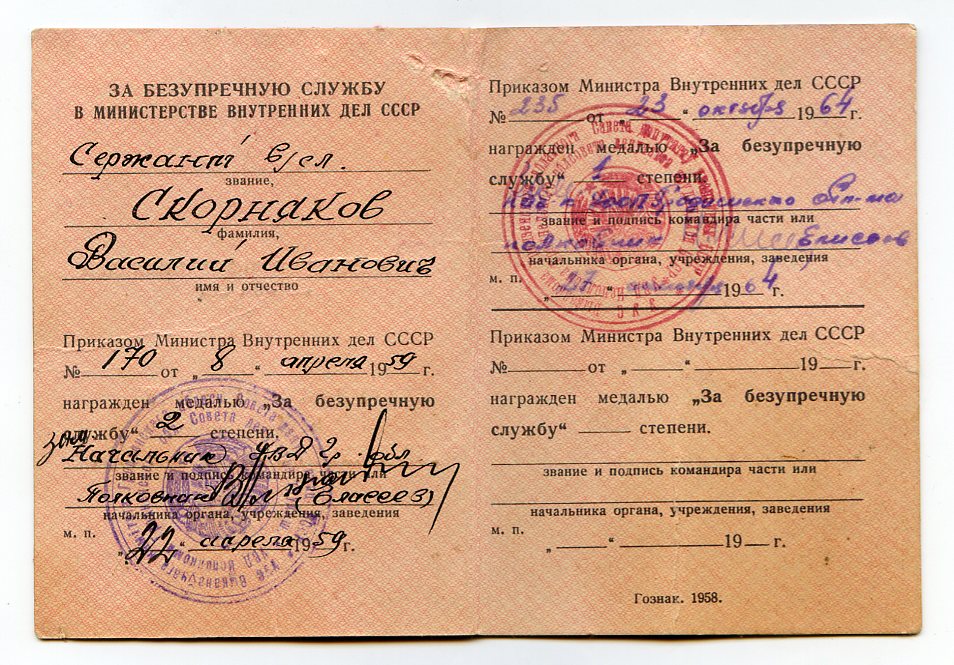 ЗА БЕЗУПРЕЧНУЮ СЛУЖБУ
В МИНИСТЕРСТВЕ ВНУТРЕННИХ ДЕЛ СССР
Сержант в/сл.
звание,
Скорняков
фамилия,
Василий Иванович
имя и отчество
Приказом Министра Внутренних дел СССР
№ 170 от „ 8 “ апреля 1959 г.
награжден медалью „За безупречную
службу“ 2 степени.
зам. Начальник УВД Гр. обл
звание и подпись командира части или
Полковник
начальника органа, учреждения, заведения
м. п.
„ 22 “ апреля 1959 г.
Приказом Министра Внутренних дел СССР
№ 235 от „ 23 “ октября 1964 г.
награжден медалью „За безупречную
службу“ 1 степени.
звание и подпись командира части или
полковник Елисеев
начальника органа, учреждения, заведения
м. п.
„ 27 “ 1964 г.
Приказом Министра Внутренних дел СССР
№ от „ “ 19 г.
награжден медалью „За безупречную
службу“ степени.
звание и подпись командира части или
начальника органа, учреждения, заведения
м. п.
„ “ 19 г.
Гознак. 1958.